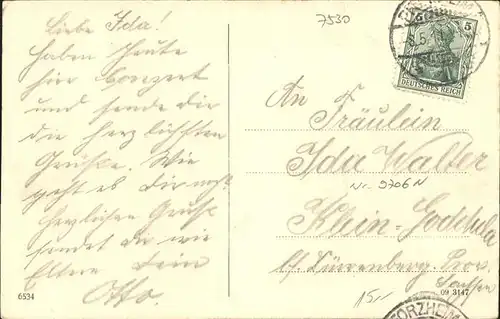 Liebe Ida!
haben Heute
hier Konzert
und sende dir
die herzlichsten
Grüße. Wie
geht es dir
herzlichen Gruß
sendet dir wie
Eltern dein
Otto.
6534
7530
5
DEUTSCHES REICH
An Fräulein
Ida Walter
Nr. 9706 N
Klein-Goddula
b/ Dürrenberg Prov.
Sachsen
15,-
09 3147
PFORZHEIM